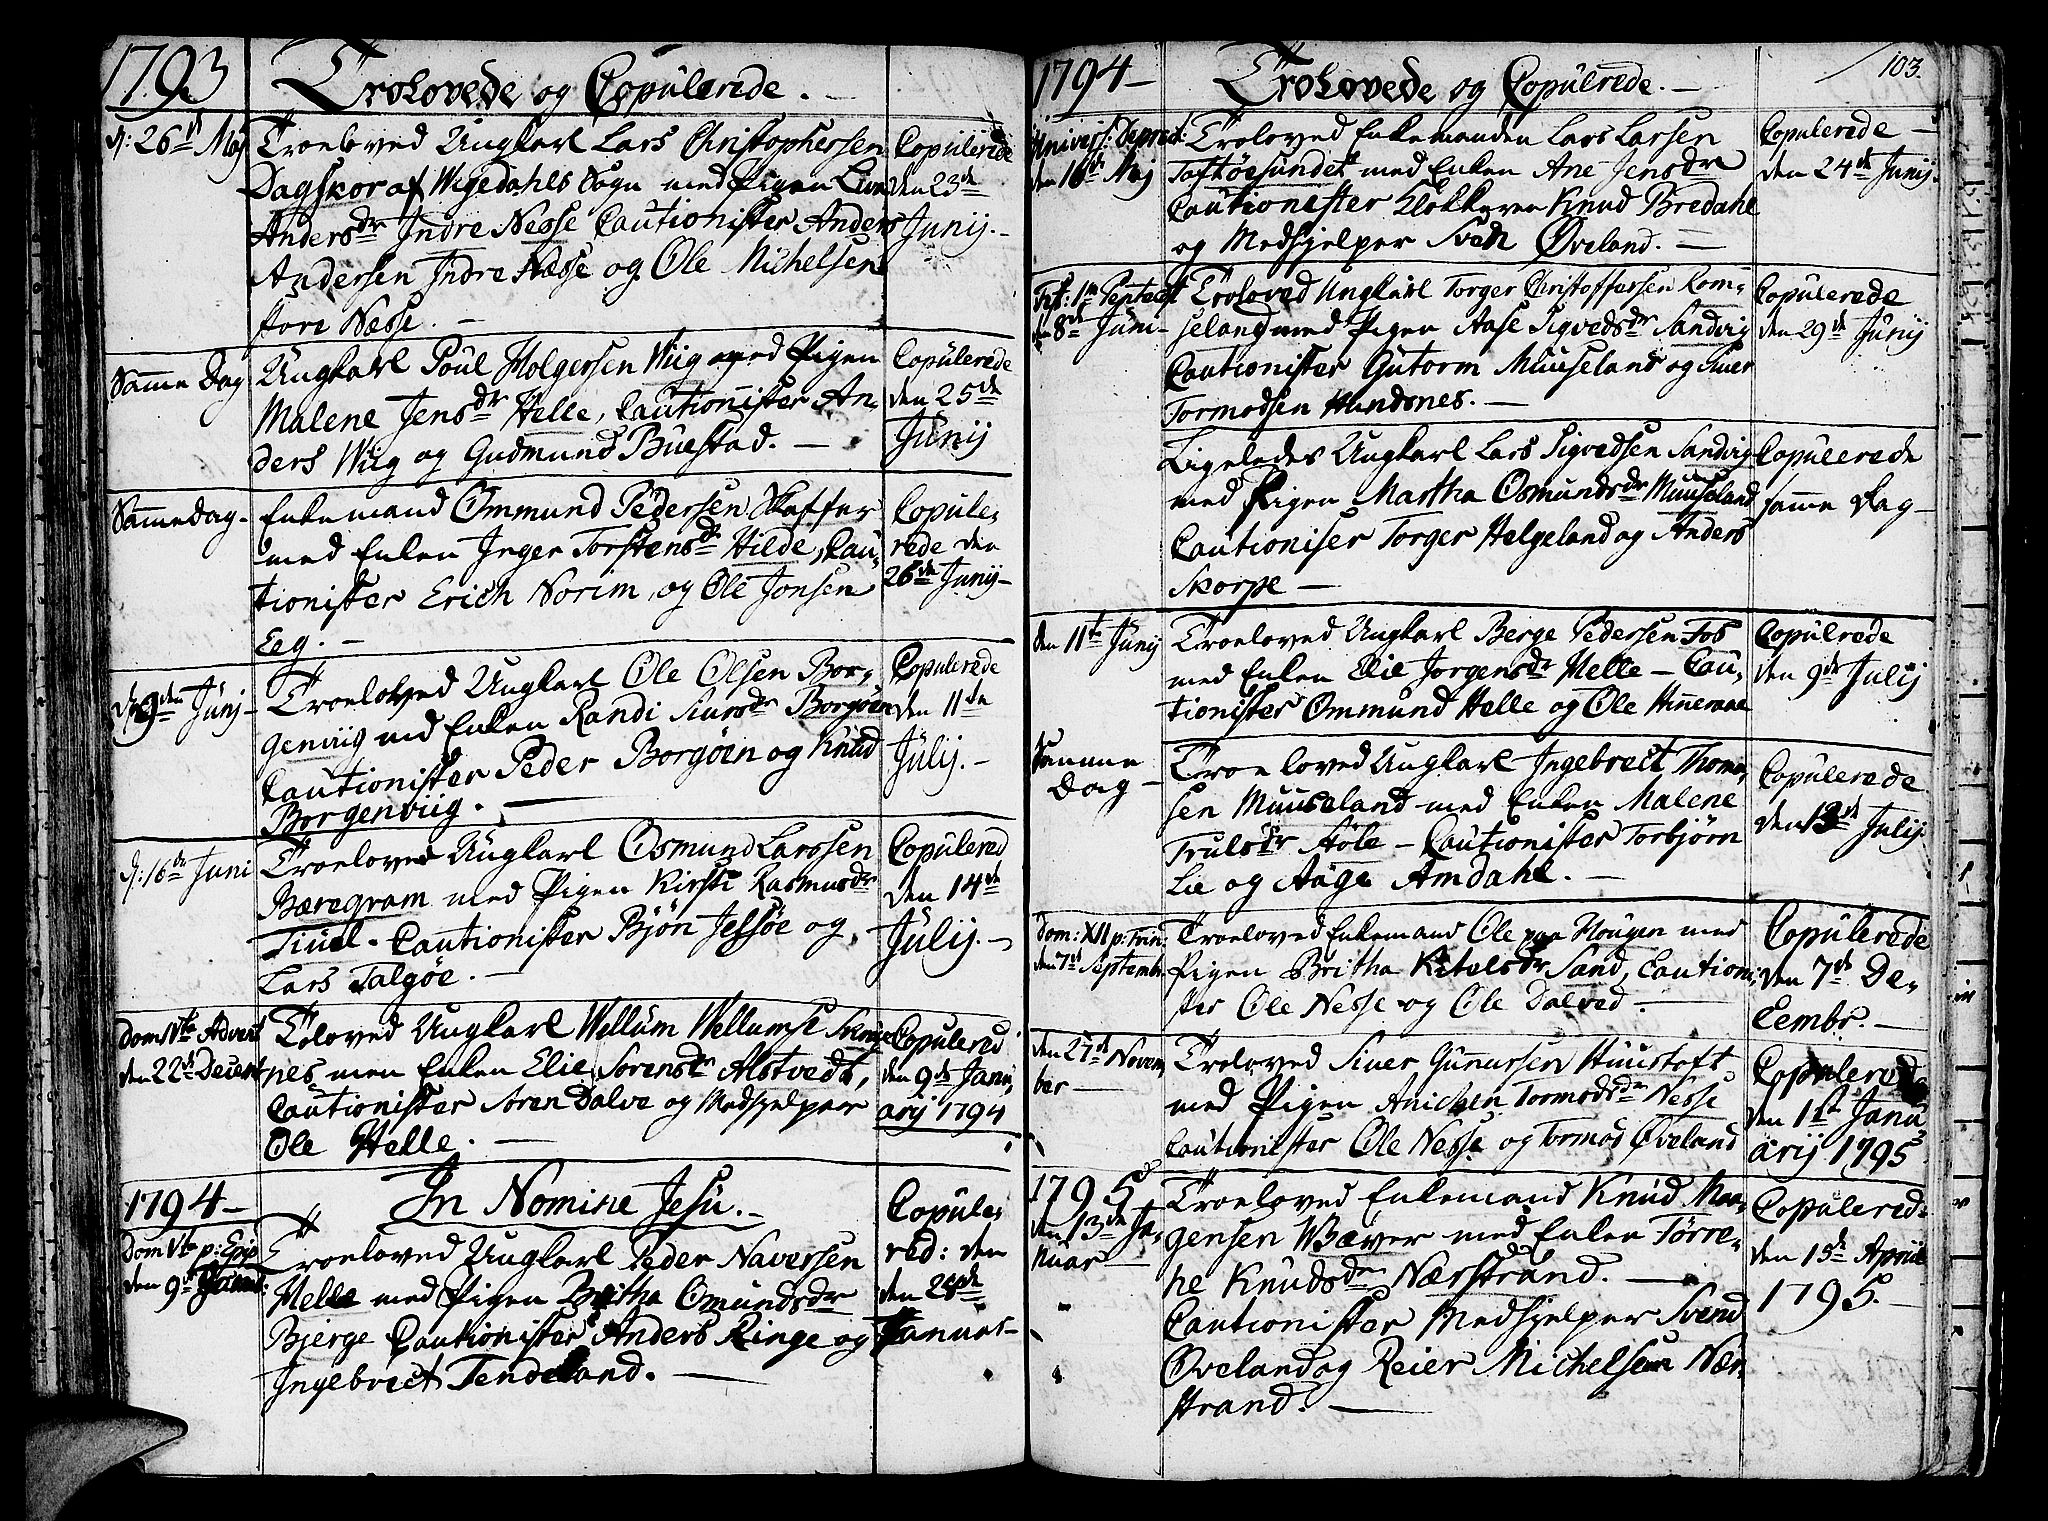 1793
Troelovede og Copulerede.
d: 26de Maj
Troeloved Ungkarl Lars Christophersen
Dagskor af Wigedahls Sogn med Pigen
Andersdr Indre Nesse Cautionister Anders
Andersen Indre Næsse og Ole Michelsen
store Nesse.
Copulerede
den 23de
Junij.
Samme Dag
Ungkarl Poul Holgersen Wiig med Pigen
Malene Jensdr Helle, Cautionister An-
ders Wiig og Gudmund Buestad.
Copulerede
den 25de
Junij
Samme dag
Enkemand Ommund Pedersen
med Enken Inger Torstensdr Hilde, Cau-
tionister Erich Norim, og Ole Jonsen
Eeg.
Copule-
rede den
26de Junij
d. 9den Junj
Troeloved Ungkarl Ole Olsen Bor-
genviig med Enken Randi Siursdr Borgøen
Cautionister Peder Borgøen og Knud
Borgenviig.
Copulerede
den 11te
Julij.
d: 16de Juni
Troeloved Ungkarl Osmund Larssen
Bæregram med Pigen Kirsti Rasmusdr
Cautionister Bjøn Jelsøe og
Lars Talgøe.
Copulered
den 14de
Julij.
Dom IVte Advent
den 22de Decem
Troloved Ungkarl Wellum Wellumse
nes men Enken Elie Sorensdr Alstvedt,
Cautionister Soren Dalve og Medhjelper
Ole Helle.
Copulered
den 9de Janu
arij 1794
1794
In Nomine Jesu.
Dom Vte p: Epip
den 9de
Troeloved Ungkarl Peder Naversen
Helle med Pigen Britha Omundsdr
Bjerge Cautionister Anders Ringe og
Ingebrect Tendeland.
Copule-
red: den
den 28de
Januar
1794
Troelovede og Copulrede.
103.
den 16de Maj
Troloved Enkemanden Lars Larsen
Toftøesundet med Enken Ane Jensdr
Cautionister Klokkeren Knud Bredahl
og Medhjelper Svend Øveland.
Copulerede
den 24de Junij.
den 8de Juni
Troloved Ungkarl Torger Christoffersen Rom-
seland med Pigen Aase Sigvedsdr Sandvig
Cautionister Gutorm Muuseland og Siver
Tormodsen Hundsnes.
Copulerede
den 29de Junij
Ligeledes Ungkarl Lars Sigvedsen Sandvig
med Pigen Martha Osmundsdr Muuseland
Cautioniser Torger Helgeland og Anders
Skorpe
Copulerede
samme Dag
den 11te Junij
Troeloved Ungkarl Berge Pedersen Fos
med Enken Elie Jorgensdr Helle Cau-
tionister Ommund Helle og Ole Hinneraae
Copulrede
den 9de Julij
Samme
Dag
Troeloved Ungkarl Ingebrect Thom-
sen Muuseland med Enken Malene
Trulsdr Støle Cautionister Torbjørn
Lie og Aage Amdahl.
Copulerede
den 13de Julij.
Dom: XII p: Trin:
den 7de Septembr
Troeloved Enkemand Ole paa Hougen med
Pigen Britha Kitelsdr Sand, Cautioni-
ster Ole Nesse og Ole Dalved
Copulerede
den 7de De-
cembr.
den 27de Novem
ber
Troloved Siver Gunnarsen Huustoft
med Pigen Anichen Tormodsdr Nesse
Cautionister Ole Nesse og Tormod Øveland
Copulered
den 1ste Janu-
arij 1795
1795
den 13de Ja-
nuar
Troeloved Enkemand Knud Mo-
gensen Wæver med Enken Torre-
he Knudsdr Nærstrand.
Cautionister Medhjelper Svend
Øveland og Reier Michelsen Nær-
strand.
Copulered
den 15de April
1795.